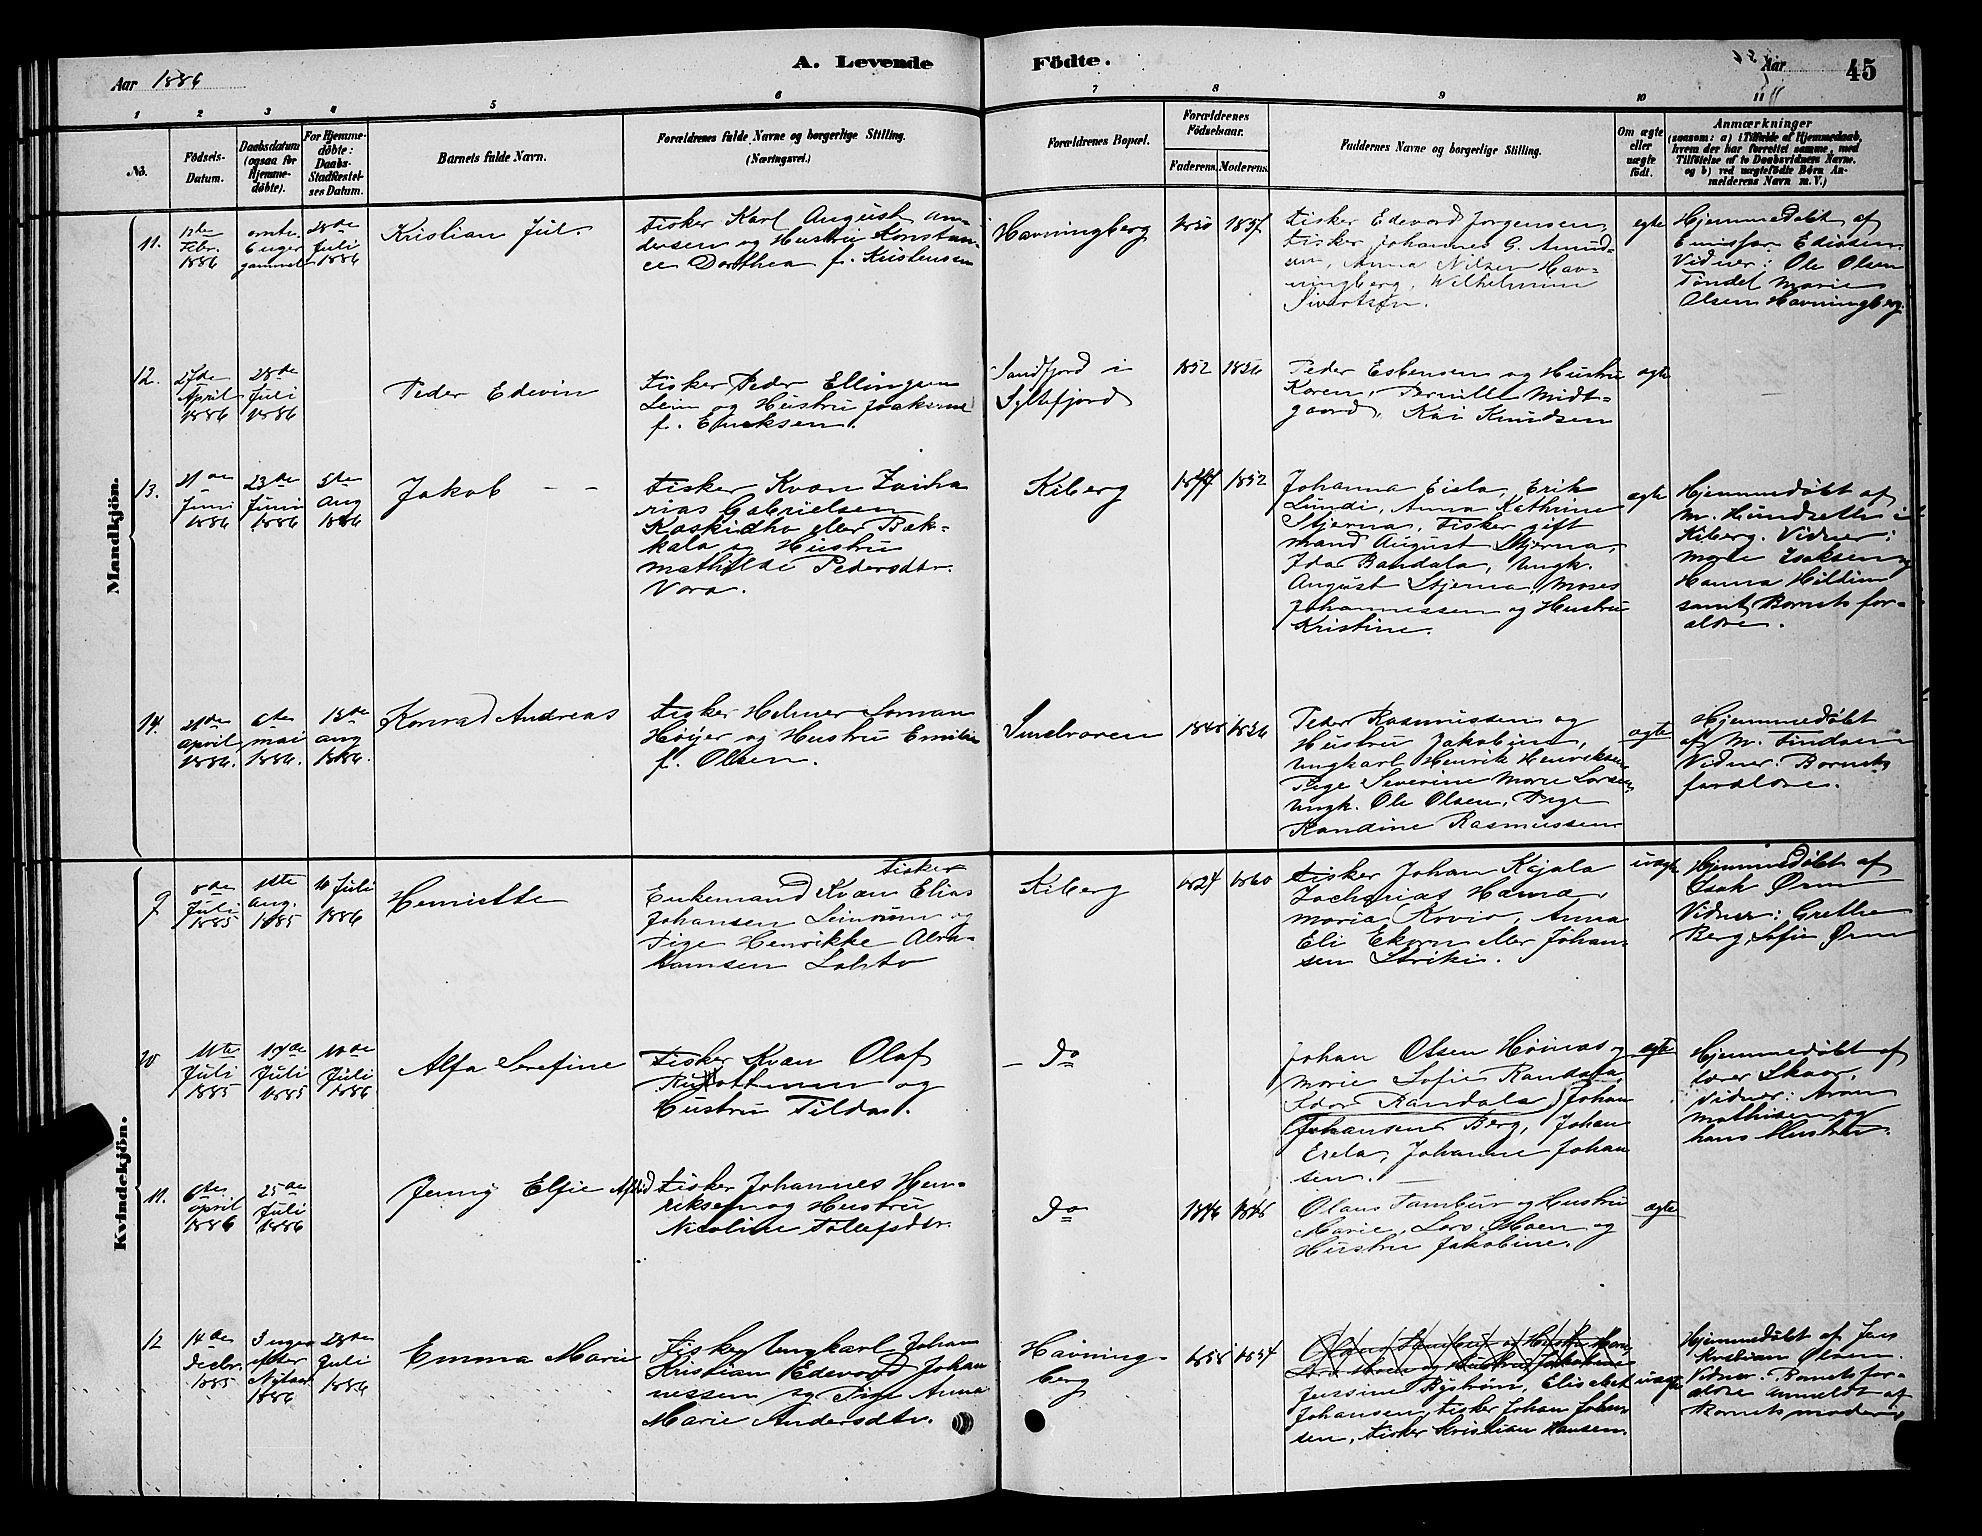 Aar 1886
A. Levende
Födte.
Aar
45
1 2 3 4 5 6 7 8 9 10 11
No.
Födsels-
Datum.
Daabsdatum
(ogsaa for
Hjemme-
döbte).
For Hjemme-
döbte:
Daabs-
Stadfæstel-
ses Datum.
Barnets fulde Navn.
Forældrenes fulde Navne og borgerlige Stilling.
(Næringsvei.)
Forældrenes Bopæl.
Forældrenes
Födselsaar.
Faderens. Moderens.
Faddernes Navne og borgerlige Stilling.
Om ægte
eller
uægte
födt.
Anmærkninger
(saasom: a) i Tilfælde af Hjemmedaab,
hvem der har forrettet samme, med
Tilföielse af to Daabsvidners Navne,
og b) ved uægtefödte Börn An-
melderens Navn m. V.)
Mandkjön.
11.
12te
Febr.
1886
omtr.
6 uger
gammel
28de
Juli
1886
Kristian Jul.
Fisker Karl August An-
dersen og Hustru Konstan-
ce Dorthea f. Kristensen
Havningberg
1850 1857
Fisker Edevard Jørgensen,
Fisker Johannes G. Amund-
sen, Anna Nilsen Hav-
ningberg, Wilhelmine
Sivertsen.
egte
Hjemmedøbt af
Enisfar Edissen
Vidner: Ole Olsen
Tondel Marie
Olsen Havningberg.
12.
27de
April
1886
28de
Juli
1886
Peder Edevin
Fisker Peder Ellingsen
Lein og Hustru Joakime
f. Ericksen.
Sandfjord i
Syltefjord
1852 1856
Peder Esbensen og Hustru
Karen, Pernille Midt-
gaard, Kai Knudsen
ægte
13.
21de
Juni
1886
23de
Juni
1886
5te
Aug
1886
Jakob - -
Fisker Kvæn Zacha
rias Gabrielsen
Kaskidho eller Bak-
kala og Hustru
Mathilde Pedersdtr.
Vora.
Kiberg
1852
Johanna Eisla, Erik
Lundi, Anna Kathrine
Stjerna, Fisker gift
mand August Stjerna,
Ida Randala, Ungk.
August Stjerna, Moses
Johannessen og Hustru
Kristine.
ægte
Hjemmedøbt af
M. Hundseth i
Kiberg. Vidner:
Marie Isaksen og
Hanna Hildine
samt Barnets for-
ældre.
14.
21de
April
1886.
6te
Mai
1886.
13de
Aug
1886.
Konrad Andreas
Fisker Helmer Loman
Høijer og Hustru Emilie
f. Olsen.
Smelroren
1848 1856
Peder Rasmussen og
Hustru Jakobine,
Ungkarl Henrik Henriksen
Pige Severine Marie Larsen,
Ungk. Ole Olsen, Pige
Randine Rasmussen
ægte
Hjemmedøbt
af M. Findsen
Vidner: Barnets
forældre.
Kvindekjön.
9
8de
Juli
1885
1ste
Aug.
1885
10 Juli
1886
Henriette
Fisker
Enkemand Kvæn Elias
Johansen Leinonen og
Pige Henrikke Abra-
hamsen Lahto
Kiberg
1824 1860
Fisker Johan Kejala
Zacharias Hama,
Maria Rovio, Anna
Eli Ekorn eller Johan-
sen Striki.
uægte
Hjemmedøbt af
Isak Ørn
Vidner: Grethe
Berg, Sofie Ørn
10
11te
Juli
1885
17de
Juli
1885
10de
Juli
1886
Alfa Serefine
Fisker Kvæn Olaf
Ruottinen og
Hustru Tilda.
— Do
Johan Olsen Heinas og
Marie Sofie Randala,
Edor Randala, Johan
Johansen Berg, Johan
Erela, Johanne Johan
sen.
ægte
Hjemmedøbt af
lærer Skaar.
Vidner: Aron
Mathisen og
hans Hustru.
11.
6te
April
1886
25de
Juli
1886
Jenny Elfie Astrid
Fisker Johannes Hen-
riksen og Hustru
Nicoline Tollefsdtr.
Do
1846 1848
Olaus Tambur og Hustru
Marie, Lars Moen og
Hustru Jakobine.
ægte
12
14de
Decbr.
1885
3 uger
efter
Nytaar
1886
28de
Juli
1886
Emma Marie
Fisker Ungkarl Johan
Kristian Edevard Johan
nessen og Pige Anna
Marie Andersdtr.
Havning-
berg
1858 1854
Olaus Tambur og Hustru Marie,
Lars Moen og Hustru Jakobine
Jensine Bystrøm, Elisabet
Johansen, Fisker Johan Johan
sen, Fisker Kristian Hansen.
uægte
Hjemmedøbt af Jens
Kristian Olsen.
Vidner: Barnets for-
ældre Anmeldt af
Barnets moder